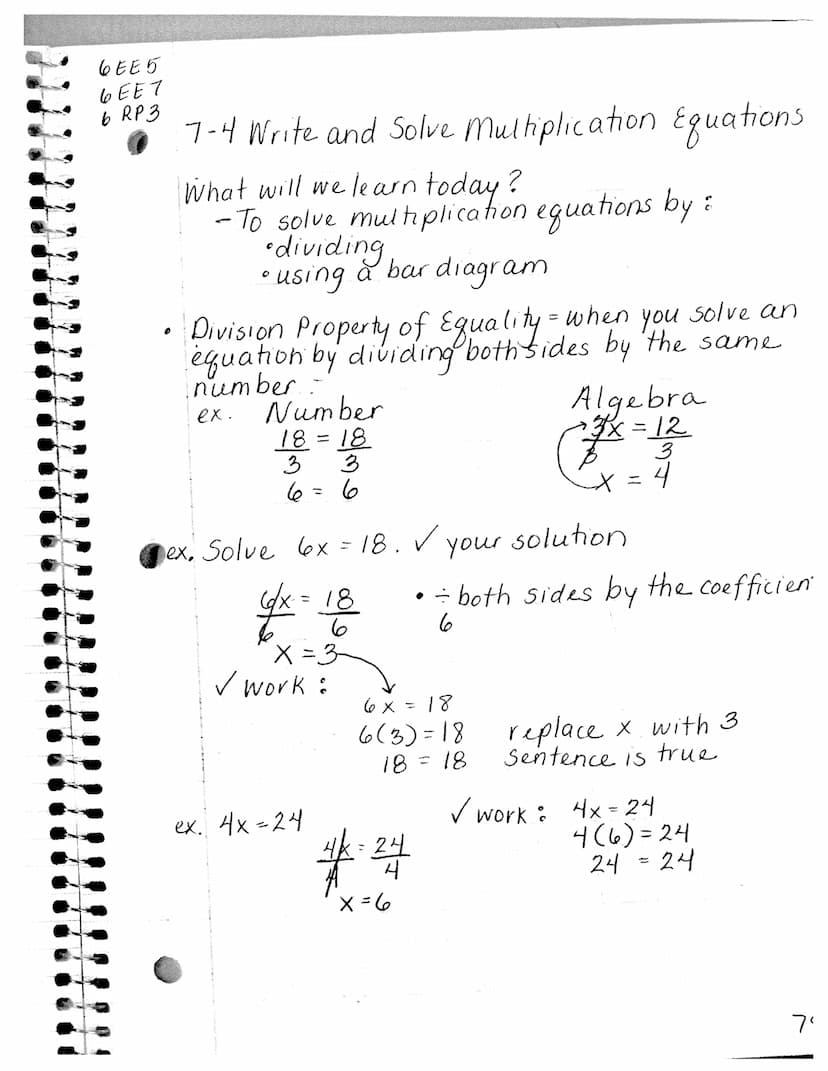 6 EE 5
6 EE 7
6 RP3
7-4 Write and Solve Multiplication Equations
What will we learn today?
- To solve multiplication equations by:
• dividing
• using a bar diagram
• Division Property of Equality = when you solve an
equation by dividing both sides by the same
number.
ex. Number
18 = 18
3 3
6 = 6
Algebra
3x = 12
3 3
x = 4
ex. Solve 6x = 18. ✓ your solution
6x = 18
6 6
x = 3
• ÷ both sides by the coefficien
6
✓ work:
6x = 18
6(3) = 18 replace x with 3
18 = 18 sentence is true
ex. 4x = 24
4x = 24
4 4
x = 6
✓ work: 4x = 24
4(6) = 24
24 = 24